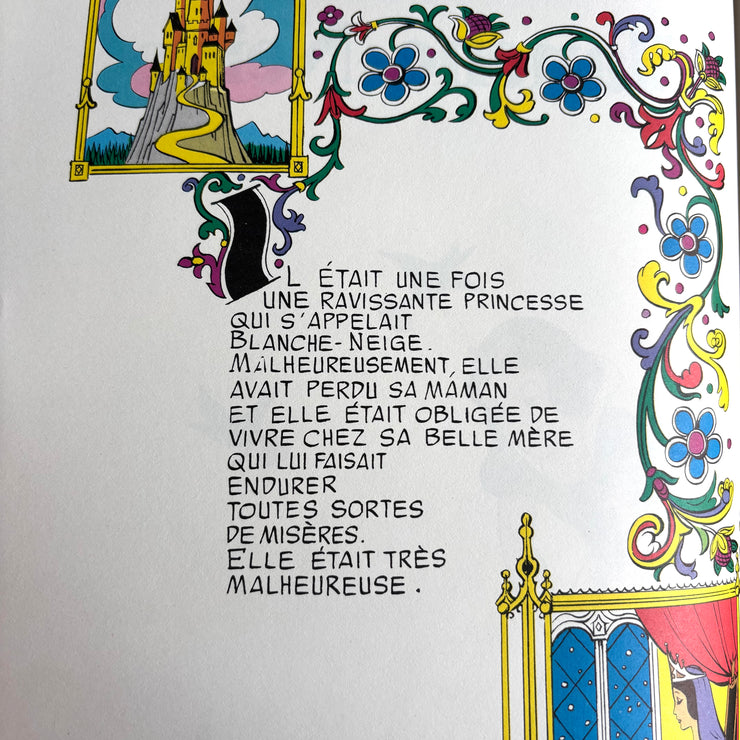 IL ÉTAIT UNE FOIS
UNE RAVISSANTE PRINCESSE
QUI S'APPELAIT
BLANCHE-NEIGE.
MALHEUREUSEMENT, ELLE
AVAIT PERDU SA MAMAN
ET ELLE ÉTAIT OBLIGÉE DE
VIVRE CHEZ SA BELLE MÈRE
QUI LUI FAISAIT
ENDURER
TOUTES SORTES
DE MISÈRES.
ELLE ÉTAIT TRÈS
MALHEUREUSE.